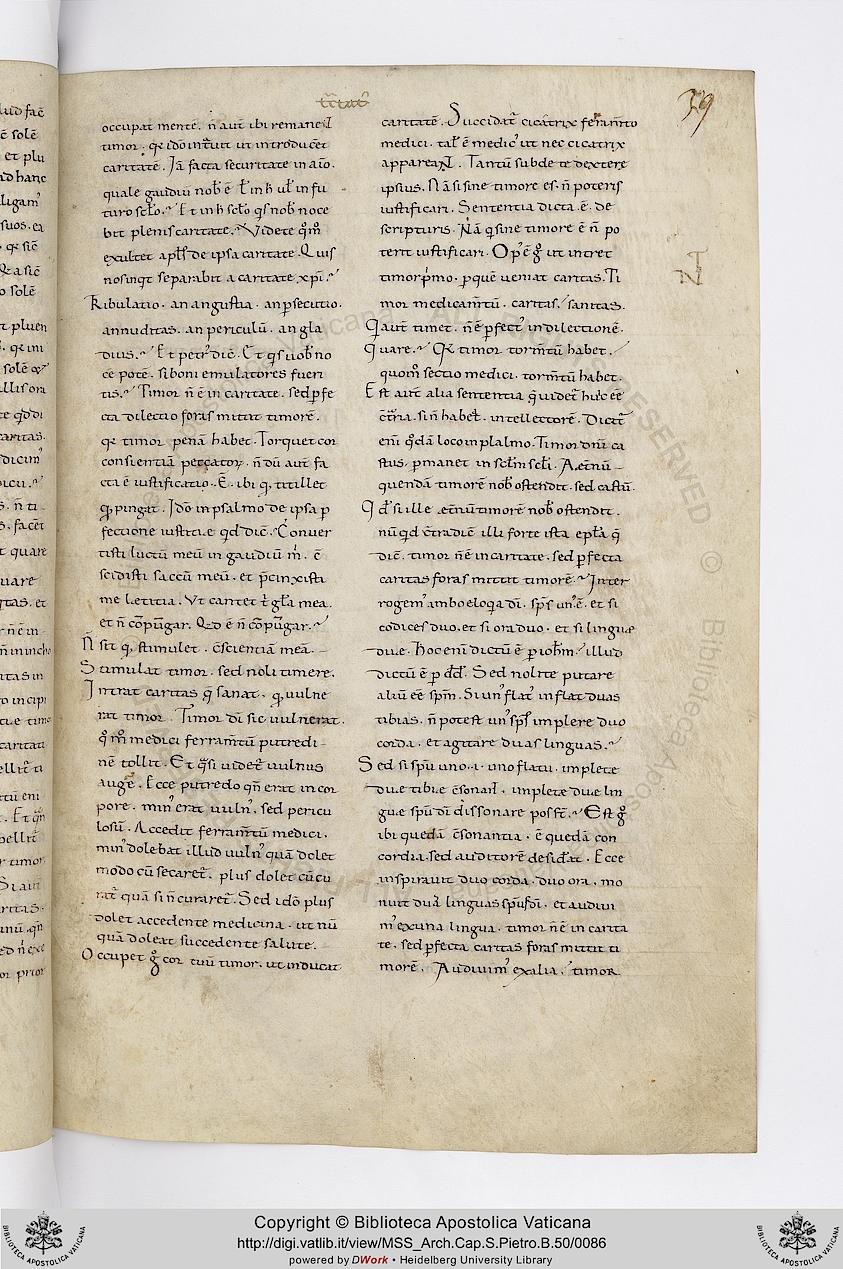 39
occupat mentē. n̄ aut̄ ibi remaneT
timor. qꝛ iđo intᷣuit ut introducēt
caritatē. Iā facta securitate in aīo.
quale gaudiū nob̄ ē t̄ in h̄ ul̓ in fu
turo sc̄lo. Et in h̄ sc̄lo q̓s nob̄ noce
bit plenis caritate. Videte q̄m̄
exultet apl̄s de ipsa caritate. Quis
nos inqt separabit a caritate xp̄i.
Tribulatio. an angustia. an ꝑsecutio.
an nuditas. an periculū. an gla
dius. Et petr᾿ diē. Et q̓s uob̄ no
ce potē. si boni emulatores fueri
tis. Timor n̄ ē in caritate. sed ꝑfe
cta dilectio foras mittit timorē.
qꝛ timor penā habet. Torquet cor
conscientiā peccatoꝝ. n̄ dū aut̄ fa
cta ē iustificatio. Ē. ibi q̨ titillet
q̨ pingit. Iđo in psalmo de ipsa ꝑ
fectione iustitię qd diē. Conuer
tisti luctū meū in gaudiū m̄. c̄
scidisti saccū meū. et p̄cinxisti
me lętitia. Vt cantet t̄ gl̄a mea.
et n̄ cōpūgar. Qd ē n̄ cōpūgar.
N̄ sit q̨ stimulet. c̄scientiā meā.
Stimulat timor. sed noli timere.
Intrat caritas q̄ sanat. q̨ uulne
rat timor. Timor dī sic uulnerat.
q̊m̊ medici ferram̄tū putredi
nē tollit. Et q̓si uidet᷑ uulnus
augē. Ecce putredo qn̄ erat in cor
pore. min᾿ erat uuln᾿, sed pericu
losū. Accedit ferram̄tū medici.
min᾿ dolebat illud uuln᾿ quā dolet
modo cū secaret᷑. plus dolet cū cu
rat᷑ quā si n̄ curaret᷑. Sed iđo plus
dolet accedente medicina. ut nū
quā doleat succedente salute.
Occupet g̊ cor tuū timor. ut inducat
caritatē. Succidat᷑ cicatrix ferram̄to
medici. tal᾿ ē medic᾿ ut nec cicatrix
appareaT. Tantū subde te dextere
ipsius. Nā si sine timore es. n̄ poteris
iustificari. Sententia dicta ē. de
scripturis. Nā q̓ sine timore ē n̄ po
terit iustificari. Op᾿ ē g̊ ut intret
timor p̓mo. ꝑ quē ueniat caritas. Ti
mor medicam̄tū. caritas, sanitas.
Q̓ aut̄ timet. n̄ ē ꝑfect᾿ in dilectionē.
Quare. Qꝛ timor torm̄tū habet.
quom̊ sectio medici. torm̄tū habet.
Est aut̄ alia sententia quę uidet᷑ huic eē
c̄t᷑ria. si n̄ habet᷑. intellectorē. Dicit᷑
enī q̊dā loco in psalmo. Timor dn̄i ca
stus, ꝑmanet in sc̄lm̄ sc̄li. Aęt̄nū
quendā timorē nob̄ ostendit. sed castū.
Qd si ille. ęt̄nū timorē nob̄ ostendit.
nūqd c̄tradiē illi forte ista epl̄a q̄
diē. timor n̄ ē in caritate. sed ꝑfecta
caritas foras mittit timorē. Inter
rogem᾿ ambo eloqia dī. sp̄s un᾿ ē. et si
codices duo. et si ora duo. et si linguę
duę. Hoc enī dictū ē ꝑ ioh̄m. illud
dictū ē ꝑ dd̄. Sed nolite putare
aliū eē sp̄m. Si un᾿ flat᾿ inflat duas
tibias. n̄ potest un᾿ sp̄s implere duo
corda. et agitare duas linguas.
Sed si sp̄u uno .i. uno flatu. implete
duę tibię c̄sonant. implete duę lin
guę sp̄u dī dissonare poss̄t. Est g̊
ibi quedā c̄sonantia. ē quedā con
cordia. sed auditorē desiđat. Ecce
inspirauit duo corda. duo ora. mo
uit duas linguas sp̄us dī. et audiui
m᾿ ex una lingua. timor n̄ ē in carita
te. sed ꝑfecta caritas foras mittit ti
morē. Audiuim᾿ ex alia. timor
Copyright © Biblioteca Apostolica Vaticana
http://digi.vatlib.it/view/MSS_Arch.Cap.S.Pietro.B.50/0086
powered by DWork • Heidelberg University Library
BIBLIOTECA APOSTOLICA VATICANA
BIBLIOTECA APOSTOLICA VATICANA